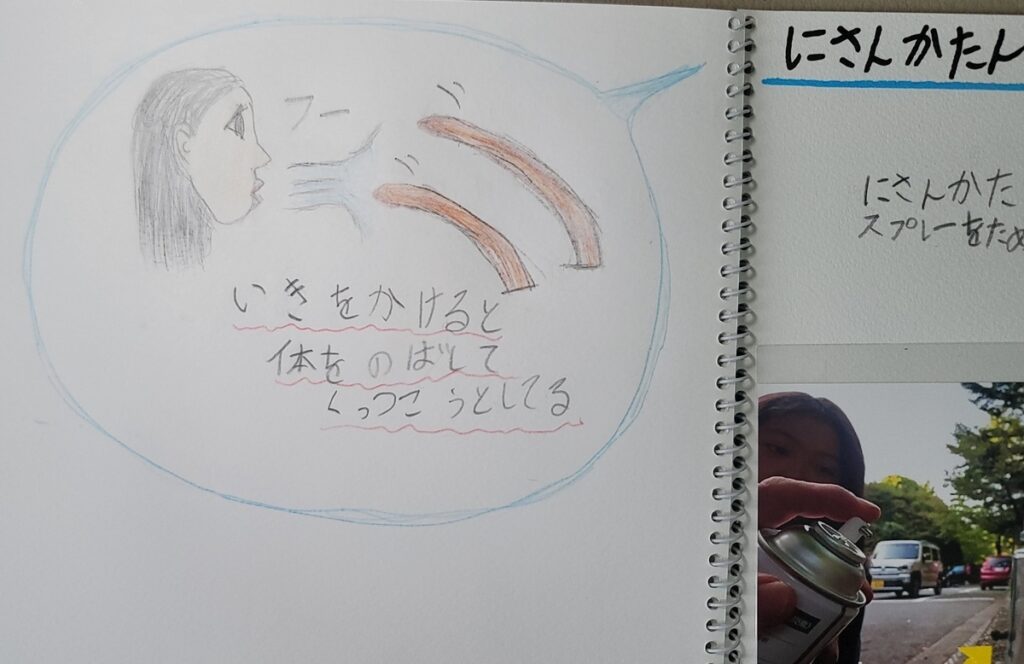 フー
いきをかけると
体をのばして
くっつこうとしてる
にさんかたん
にさんかた
スプレーをため